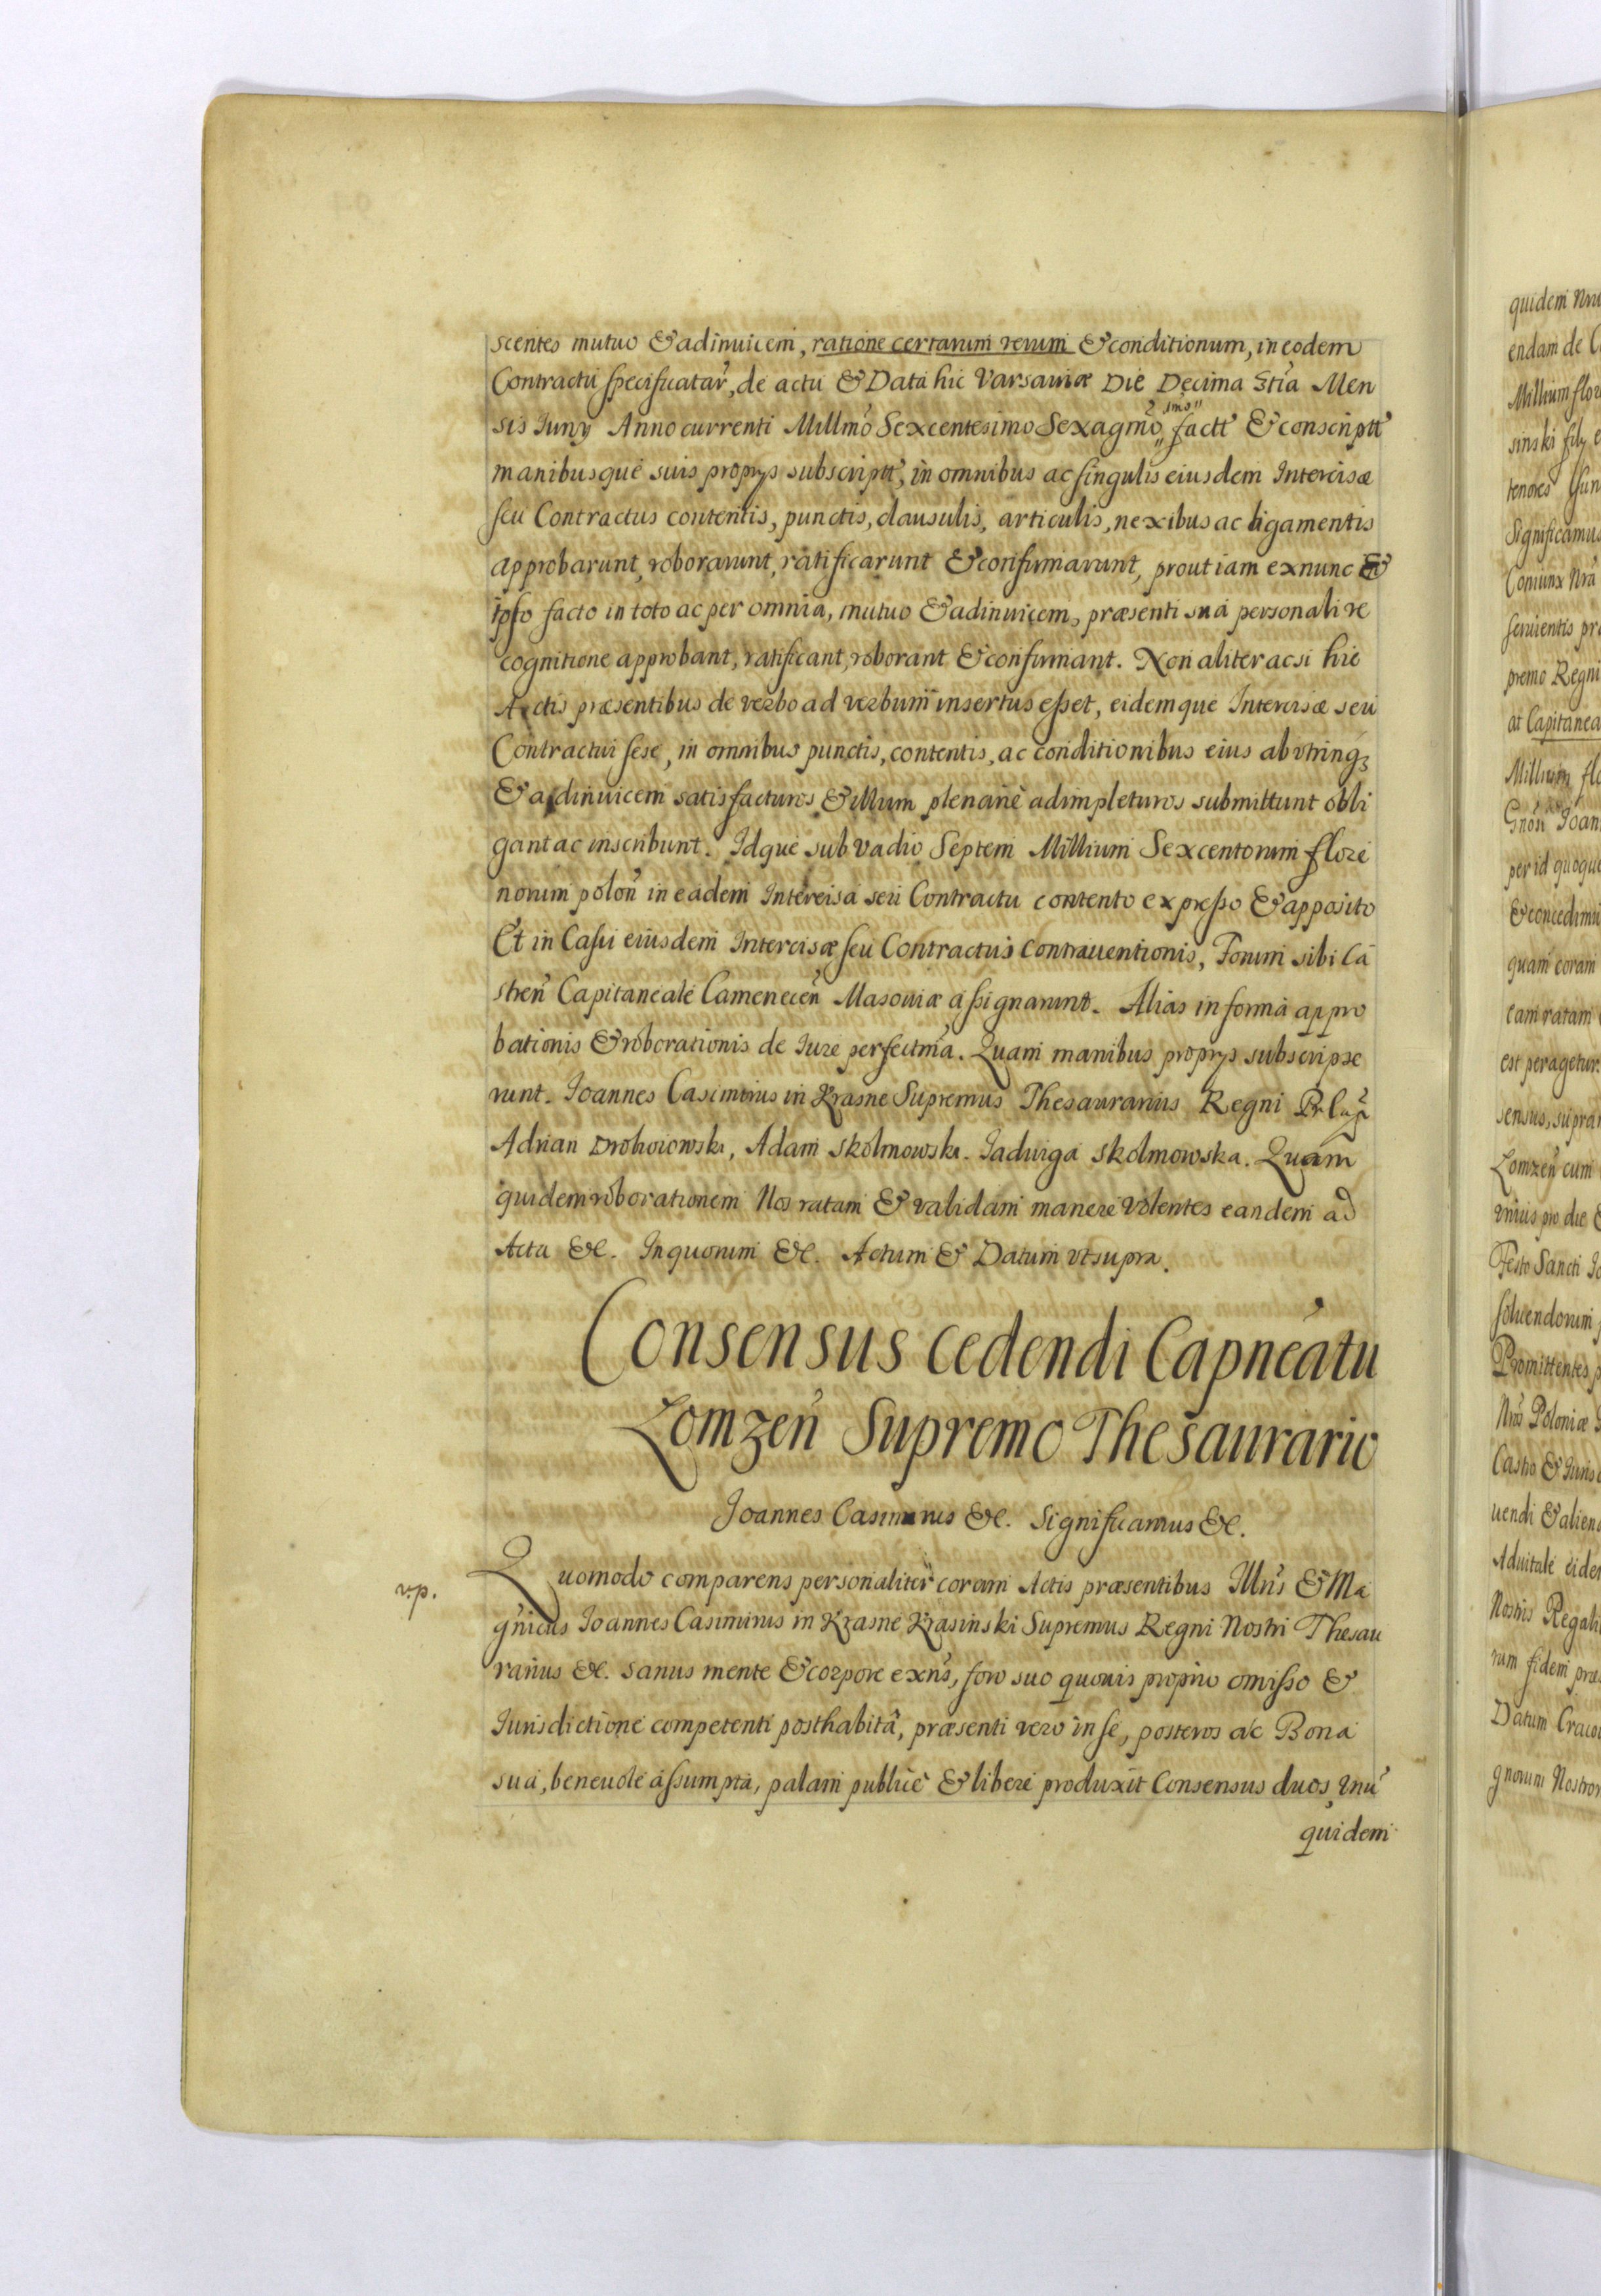 scentes mutuo & adinuicem, ratione certarum rerum & conditionum, in eodem
Contractu specificatar̃, de actu & Data hic Varsauiæ Die Decima 3tia Men
sis Iunÿ Anno currenti Millmo Sexcentesimo Sexagmo factt & conscriptt
manibusque suis proprÿs subscriptt, in omnibus ac singulis eiusdem Intercisæ
seu Contractus contentis, punctis, clausulis, articulis, nexibus ac ligamentis
approbarunt, roborarunt, ratificarunt & confirmarunt, prout iam exnunc &
ipso facto in toto ac per omnia, mutuo & adinuicem, præsenti sua personali re
cognitione approbant, ratificant, roborant & confirmant. Non aliter acsi hic
Actis præsentibus de verbo ad verbum insertus esset, eidemque Intercisæ seu
Contractui sese, in omnibus punctis, contentis, ac conditionibus eius ab vtrinq3
& adinuicem satisfacturos & illum plenarie adimpleturos submittunt obli
gant ac inscribunt. Idque sub vadio Septem Millium Sexcentorum flore
norum polon̄ in eadem Intercisa seu Contractu contento expresso & apposito
Et in Casu eiusdem Intercisæ seu Contractus contrauentionis, Forum sibi Ca
stren̄ Capitaneale Camenecen̄ Masouiæ assignarunt. Alias in forma appro
bationis & roborationis de Iure perfectma. Quam manibus proprÿs subscripse
runt. Ioannes Casimirus in Krasne Supremus Thesaurarius Regni
Adrian Drohoiowski, Adam Skolmowski. Jadwiga Skolmowska. Quam
quidem roborationem Nos ratam & validam manere volentes eandem ad
Acta &c. In quorum &c. Actum & Datum vt supra.
Consensus cedendi Capneatu
Lomzen̄ Supremo Thesaurario
Joannes Casimirus &c. Significamus &c.
r.p.
Quomodo comparens personaliter coram Actis præsentibus Illris & Ma
gnicus Ioannes Casimirus in Krasne Krasinski Supremus Regni Nostri Thesau
rarius &c. sanus mente & corpore exns, foro suo quouis proprio omisso &
Iurisdictione competenti posthabitâ, præsenti vero in se, posteros ac Bona
sua, beneuole assumpta, palam publice & libere produxit Consensus duos, vnū
quidem